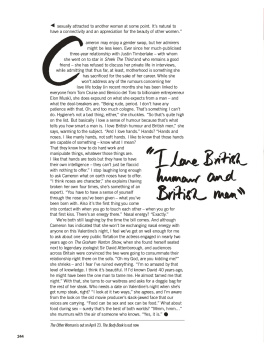 ◄ sexually attracted to another woman at some point. It's natural to
have a connectivity and an appreciation for the beauty of other women."
Cameron may enjoy a gander away, but her admirers
might be less keen. Ever since her much-publicised
three-year relationship with Justin Timberlake – with whom
she went on to star in Shrek The Third and who remains a good
friend – she has refused to discuss her private life in interviews,
while admitting that thus far, at least, motherhood is something she
has sacrificed for the sake of her career. While she
won't address any of the rumours concerning her
love life today (in recent months she has been linked to
everyone from Tom Cruise and Benicio del Toro to billionaire entrepreneur
Elon Musk), she does expound on what she expects from a man – and
what the deal-breakers are. "Being rude, period. I don't have any
patience with that. Oh, and too much cologne. That's something I can't
do. Hygiene's not a bad thing, either," she chuckles. "So that's quite high
on the list. But basically I love a sense of humour because that's what
tells you how smart a man is. I love British humour and British men," she
says, warming to the subject. "And I love hands." Hands? "Hands and
noses. I like manly hands, not soft hands. I like to know that those hands
are capable of something – know what I mean?
That they know how to do hard work and
manipulate things, whatever those things are.
I like that hands are tools but they have to have
their own intelligence – they can't just be flaccid
with nothing to offer." I stop laughing long enough
to ask Cameron what on earth noses have to offer.
"I think noses are character," she explains (having
broken her own four times, she's something of an
expert). "You have to have a sense of yourself
through the nose you've been given – what you've
been born with. Also it's the first thing you come
into contact with when you go to touch each other – when you go for
that first kiss. There's an energy there." Nasal energy? "Exactly."
We're both still laughing by the time the bill comes. And although
Cameron has indicated that she won't be exchanging nasal energy with
anyone on this Valentine's night, I feel we've got on well enough for me
to ask about one very public flirtation the actress engaged in nearly two
years ago on The Graham Norton Show, when she found herself seated
next to legendary zoologist Sir David Attenborough, and audiences
across Britain were convinced the two were going to consummate their
relationship right there on the sofa. "Oh my God, are you kidding me?"
she shrieks – and I fear I've ruined everything. "I'm so amazed by that
level of knowledge. I think it's beautiful. If I'd known David 40 years ago,
he might have been the one man to tame me. He almost tamed me that
night." With that, she turns to our waitress and asks for a doggie bag for
the rest of her steak. Who needs a date on Valentine's night when she's
got rump steak, right? "I look at it two ways," she agrees, and I'm aware
from the look on the old movie producer's slack-jawed face that our
voices are carrying. "Food can be sex and sex can be food." What about
food during sex – surely that's the best of both worlds? "Mmm, hmm..."
she murmurs with the air of someone who knows. "Yes, it is." ●
The Other Woman is out on April 23. The Body Book is out now
"I love British
humour and
British men"
244